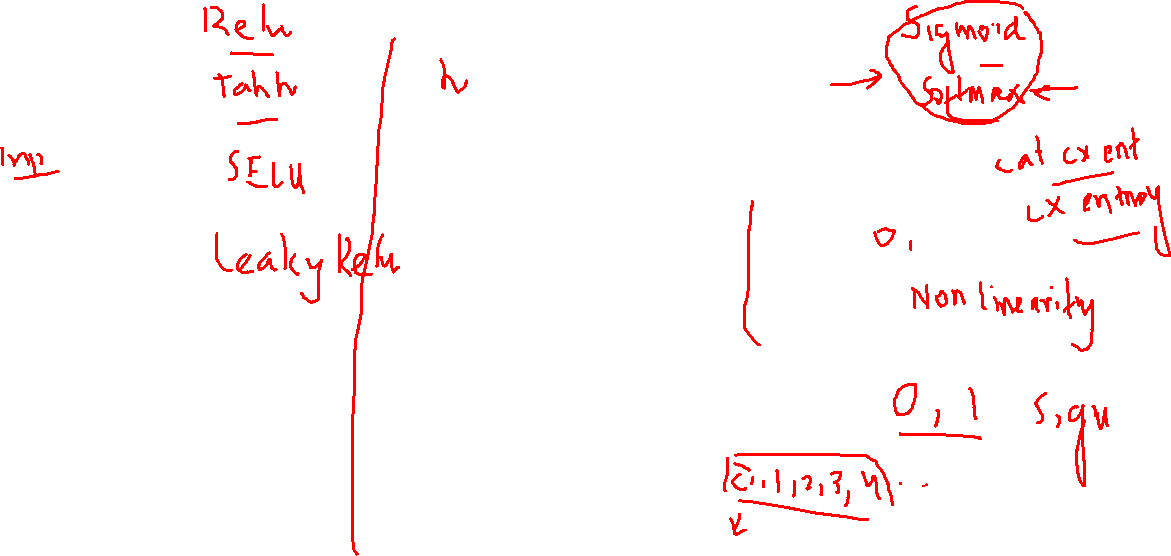 Relu
Tanh
Imp
SELU
Leaky Relu
h
Sigmoid
Softmax
cat cx ent
cx entropy
0,
Non linearity
0, 1
0, 1, 2, 3, 4 ..